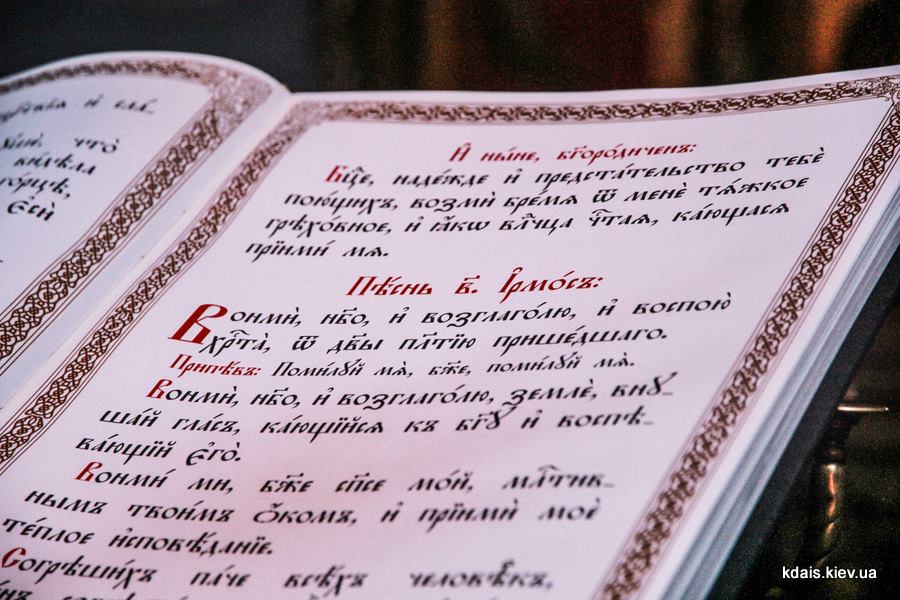 что̀
ви́дѣла
Є҆сѝ
И҆ ны́не, бг҃оро́диченъ:
Бц҃е, наде́жде и҆ предста́тельство тебѐ
пою́щихъ, возмѝ бре́мя ѿ менѐ тѧ́жкое
грѣхо́вное, и҆ ꙗ҆́кѡ влⷣчца чⷭ҇тая, ка́ющася
прїимѝ мѧ.
Пѣ́снь в҃. І҆рмо́съ:
Вонмѝ, нб҃о, и҆ возглаго́лю, и҆ воспою̀
хрⷭ҇та̀, ѿ дв҃ы пло́тїю прише́дшаго.
Припѣ́въ: Поми́лꙋй мѧ̀, бж҃е, поми́лꙋй мѧ̀.
Вонмѝ, нб҃о, и҆ возглаго́лю, землѐ, внꙋ_
ша́й гла́съ, ка́ющїйся къ бг҃ꙋ и҆ воспѣ_
ва́ющїй є҆го̀.
Вонмѝ ми, бж҃е сп҃се мо́й, млⷭ҇тив_
нымъ твои́мъ ѻ҆́комъ, и҆ прїимѝ моѐ
те́плое и҆сповѣ́данїе.
Согрѣши́хъ па́че всѣ́хъ человѣ̑къ,
kdais.kiev.ua